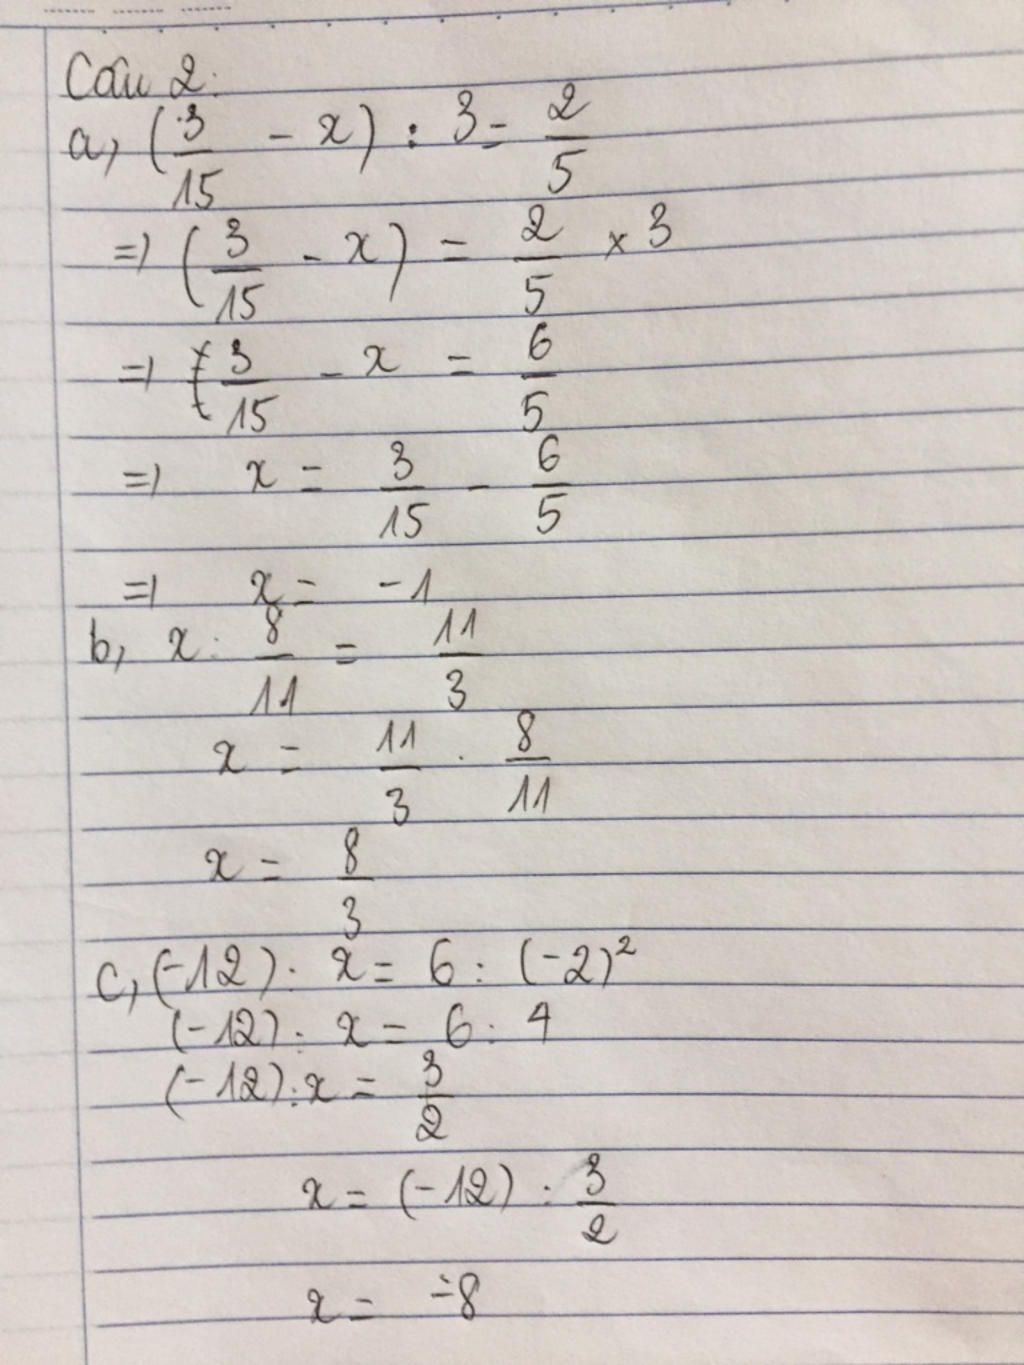 Câu 2:
a, (3/15 - x) : 3 = 2/5
=> (3/15 - x) = 2/5 × 3
=> 3/15 - x = 6/5
=> x = 3/15 - 6/5
=> x = -1
b, x : 8/11 = 11/3
x = 11/3 . 8/11
x = 8/3
c, (-12) : x = 6 : (-2)²
(-12) : x = 6 : 4
(-12) : x = 3/2
x = (-12) : 3/2
x = -8